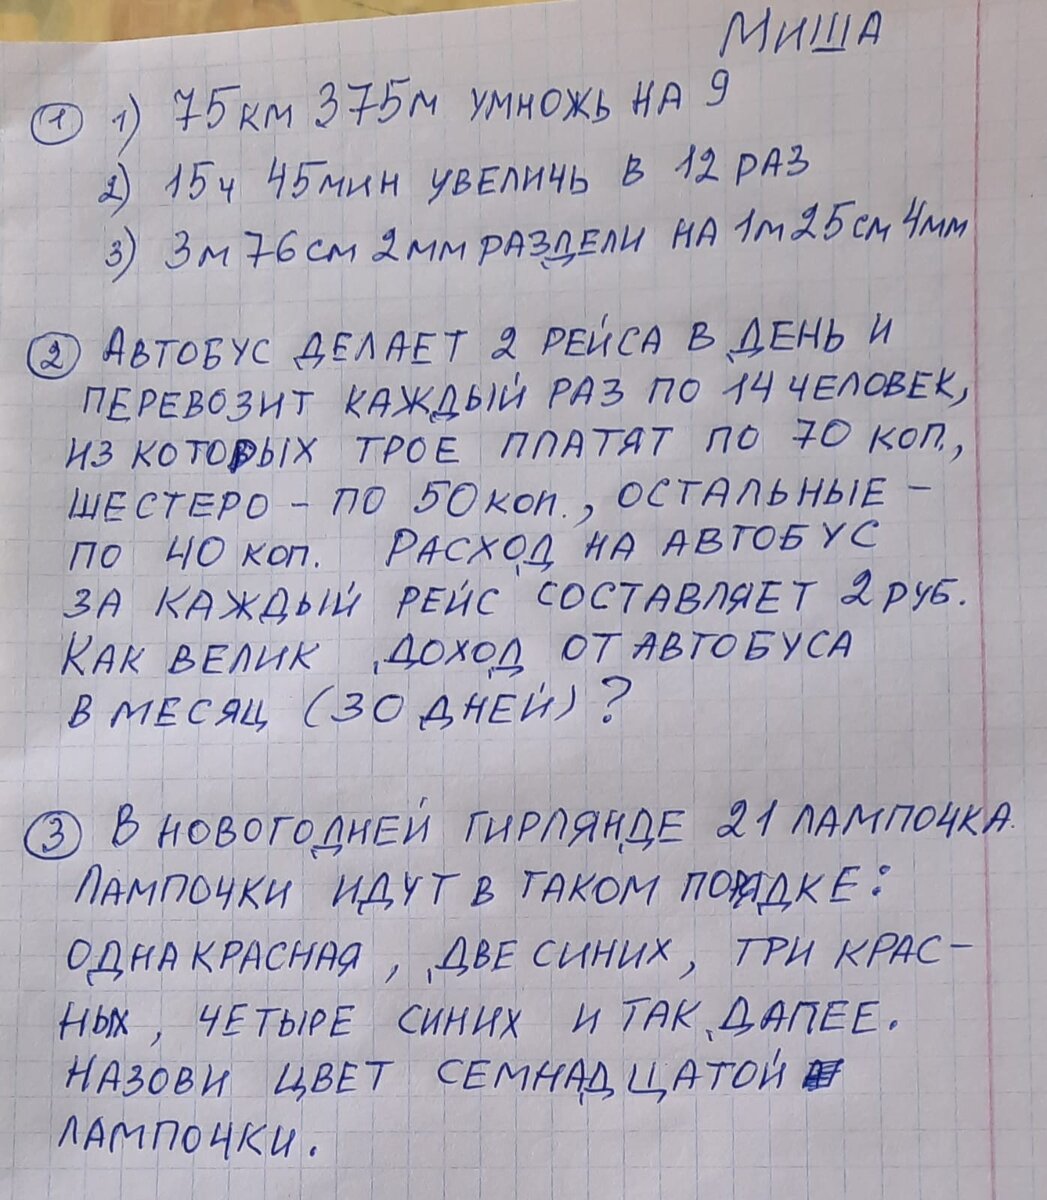 МИША
① 1) 75км 375м УМНОЖЬ НА 9
2) 15ч 45мин УВЕЛИЧЬ В 12 РАЗ
3) 3м 76см 2мм РАЗДЕЛИ НА 1м 25см 4мм
② АВТОБУС ДЕЛАЕТ 2 РЕЙСА В ДЕНЬ И
ПЕРЕВОЗИТ КАЖДЫЙ РАЗ ПО 14 ЧЕЛОВЕК,
ИЗ КОТОРЫХ ТРОЕ ПЛАТЯТ ПО 70 КОП.,
ШЕСТЕРО – ПО 50 КОП., ОСТАЛЬНЫЕ –
ПО 40 КОП. РАСХОД НА АВТОБУС
ЗА КАЖДЫЙ РЕЙС СОСТАВЛЯЕТ 2 РУБ.
КАК ВЕЛИК ДОХОД ОТ АВТОБУСА
В МЕСЯЦ (30 ДНЕЙ)?
③ В НОВОГОДНЕЙ ГИРЛЯНДЕ 21 ЛАМПОЧКА.
ЛАМПОЧКИ ИДУТ В ТАКОМ ПОРЯДКЕ:
ОДНА КРАСНАЯ, ДВЕ СИНИХ, ТРИ КРАС–
НЫХ, ЧЕТЫРЕ СИНИХ И ТАК ДАЛЕЕ.
НАЗОВИ ЦВЕТ СЕМНАДЦАТОЙ
ЛАМПОЧКИ.